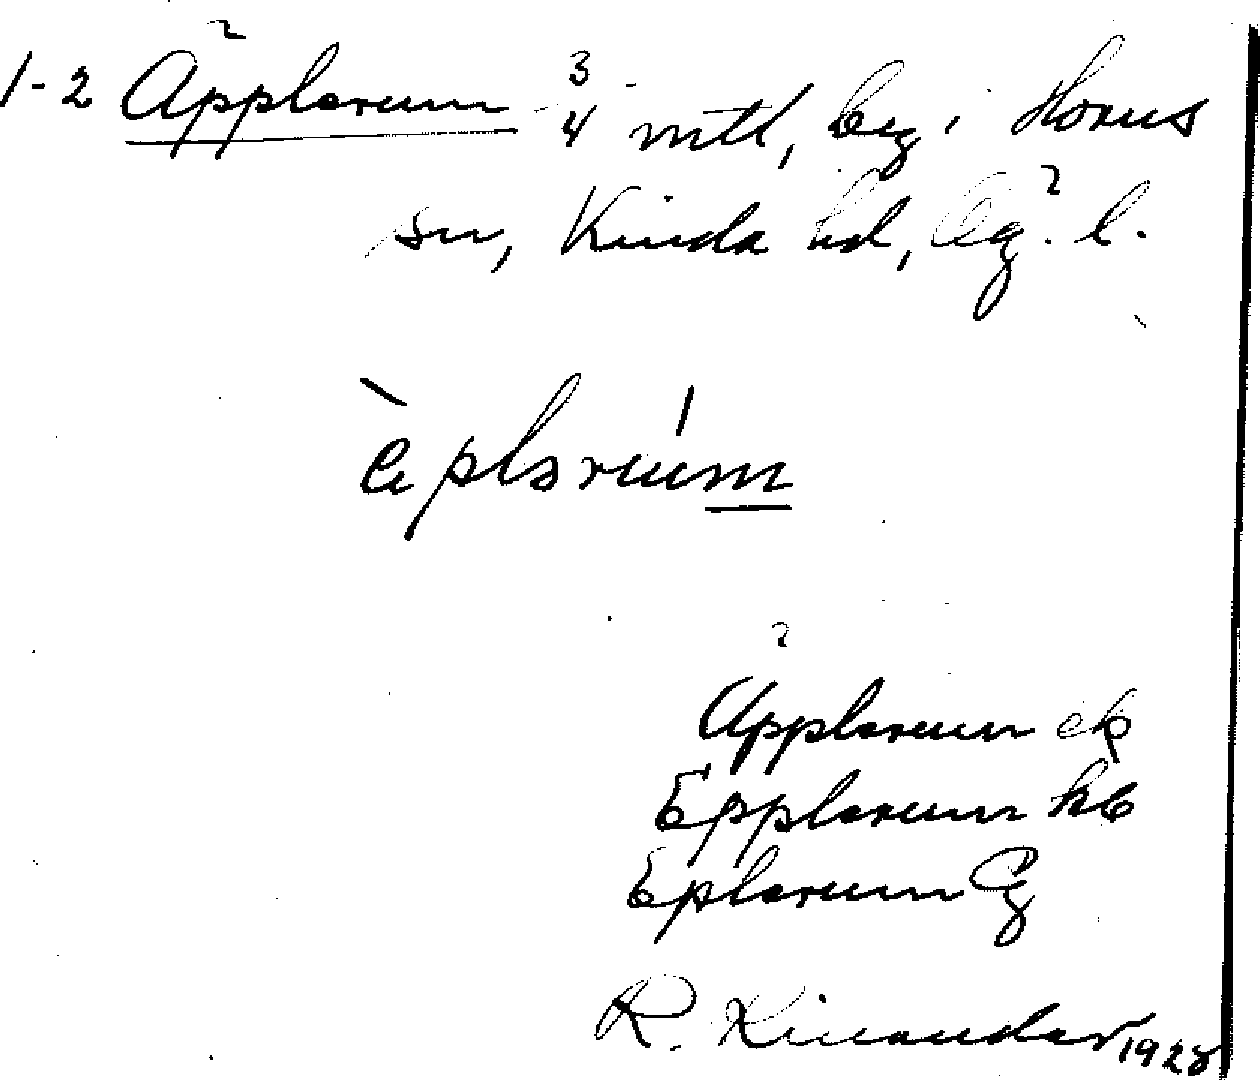 1-2 Äpplorum 3/4 mtl, by i Horns
sn, Kinda hd, Ög. l.
èplorúm
Äpplorum ek
Epplorum hb
Eplorum Cg
R. Kinander 1928